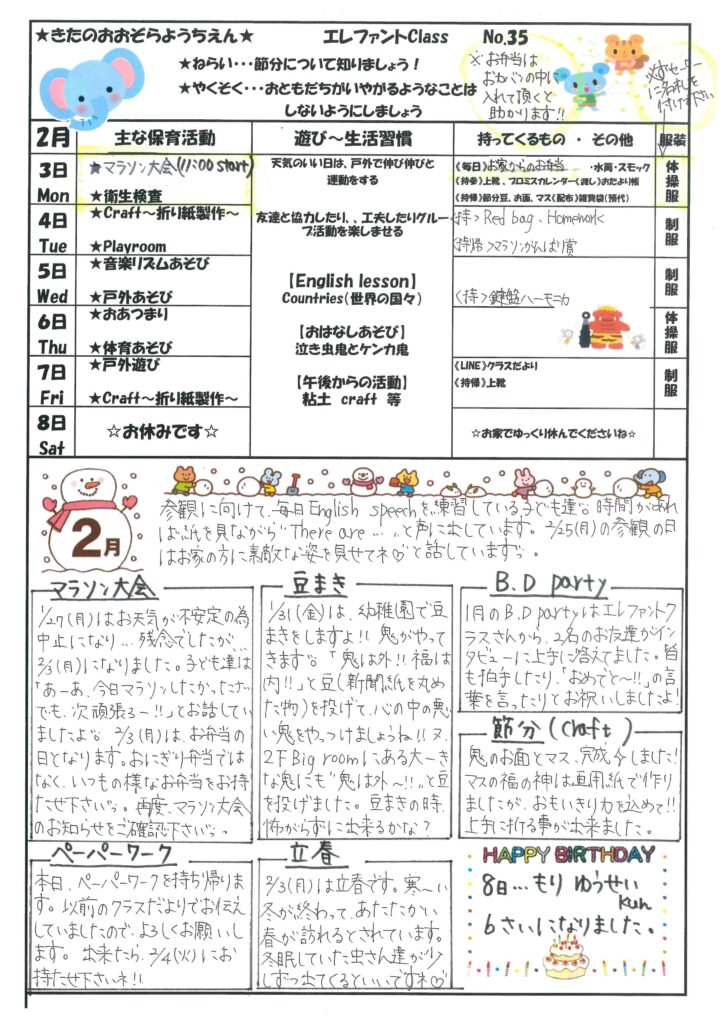 ★きたのおおぞらようちえん★　エレファントClass　No.35
★ねらい・・・節分について知りましょう！
★やくそく・・・おともだちがいやがるようなことは
しないようにしましょう
※お弁当は
おカバンの中に
入れて頂くと
助かります!!
に名札を
付けて下さい
2月　主な保育活動　遊び～生活習慣　持ってくるもの ・ その他　服装
3日
Mon
★マラソン大会(11:00 start)
★衛生検査
天気のいい日は、戸外で伸び伸びと
運動をする
《毎日》お家からのお弁当　・水筒・スモック
《持参》上靴、プロミスカレンダー《渡し》おたより帳
《持帰》節分豆、お面、マス《配布》雑費袋(預代)
体操服
4日
Tue
★Craft～折り紙製作～
★Playroom
友達と協力したり、、工夫したりグルー
プ活動を楽しませる
〈持〉Red bag、Homework
〈持帰〉マラソンがんばり賞
制服
5日
Wed
★音楽リズムあそび
★戸外あそび
【English lesson】
Countries(世界の国々)
〈持〉鍵盤ハーモニカ
制服
6日
Thu
★おあつまり
★体育あそび
【おはなしあそび】
泣き虫鬼とケンカ鬼
体操服
7日
Fri
★戸外遊び
★Craft～折り紙製作～
【午後からの活動】
粘土　craft　等
《LINE》クラスだより
《持帰》上靴
制服
8日
Sat
☆お休みです☆
☆お家でゆっくり休んでくださいね☆
2月
参観に向けて、毎日English speechを練習している子ども達。時間があれ
ば、紙を見ながら"There are...."と声に出しています。2/25(月)の参観の日
はお家の方に素敵な姿を見せてネ♡と話しています。
マラソン大会
1/27(月)はお天気が不安定の為
中止になり...残念でしたが...
2/3(月)になりました。子ども達は
「あーあ、今日マラソンしたかったな…
でも、次頑張ろー!!」とお話してい
ましたよ。2/3(月)は、お弁当の
日となります。おにぎり弁当では
なく、いつもの様なお弁当をお持
たせ下さい。再度、マラソン大会
のお知らせをご確認下さい。
豆まき
1/31(金)は、幼稚園で豆
まきをしますよ!!鬼がやって
きます。「鬼は外!!福は
内!!」と豆(新聞紙を丸め
た物)を投げて、心の中の悪
い鬼をやっつけましょうね!!又、
2F Big roomにある大～き
な鬼にも"鬼は外～!!"と豆
を投げました。豆まきの時、
怖がらずに出来るかな？
B.D party
1月のB.D partyはエレファントク
ラスさんから、2名のお友達がイン
タビューに上手に答えてました。皆
も拍手したり、「おめでと～!!」の言
葉を言ったりとお祝いしましたよ!
節分(Craft)
鬼のお面とマス、完成しました!
マスの福の神は画用紙で作り
ましたが、おもいきり力を込めて!!
上手に折る事が出来ました。
ペーパーワーク
本日、ペーパーワークを持ち帰りま
す。以前のクラスだよりでお伝え
していましたので、よろしくお願いし
ます。出来たら、2/4(火)にお
持たせ下さいネ!!
立春
2/3(月)は立春です。寒～い
冬が終わって、あたたかい
春が訪れるとされています。
冬眠していた虫さん達が少
しずつ出てくるといいですネ♡
HAPPY BIRTHDAY
8日...もり ゆうせい
kun
6さいになりました。